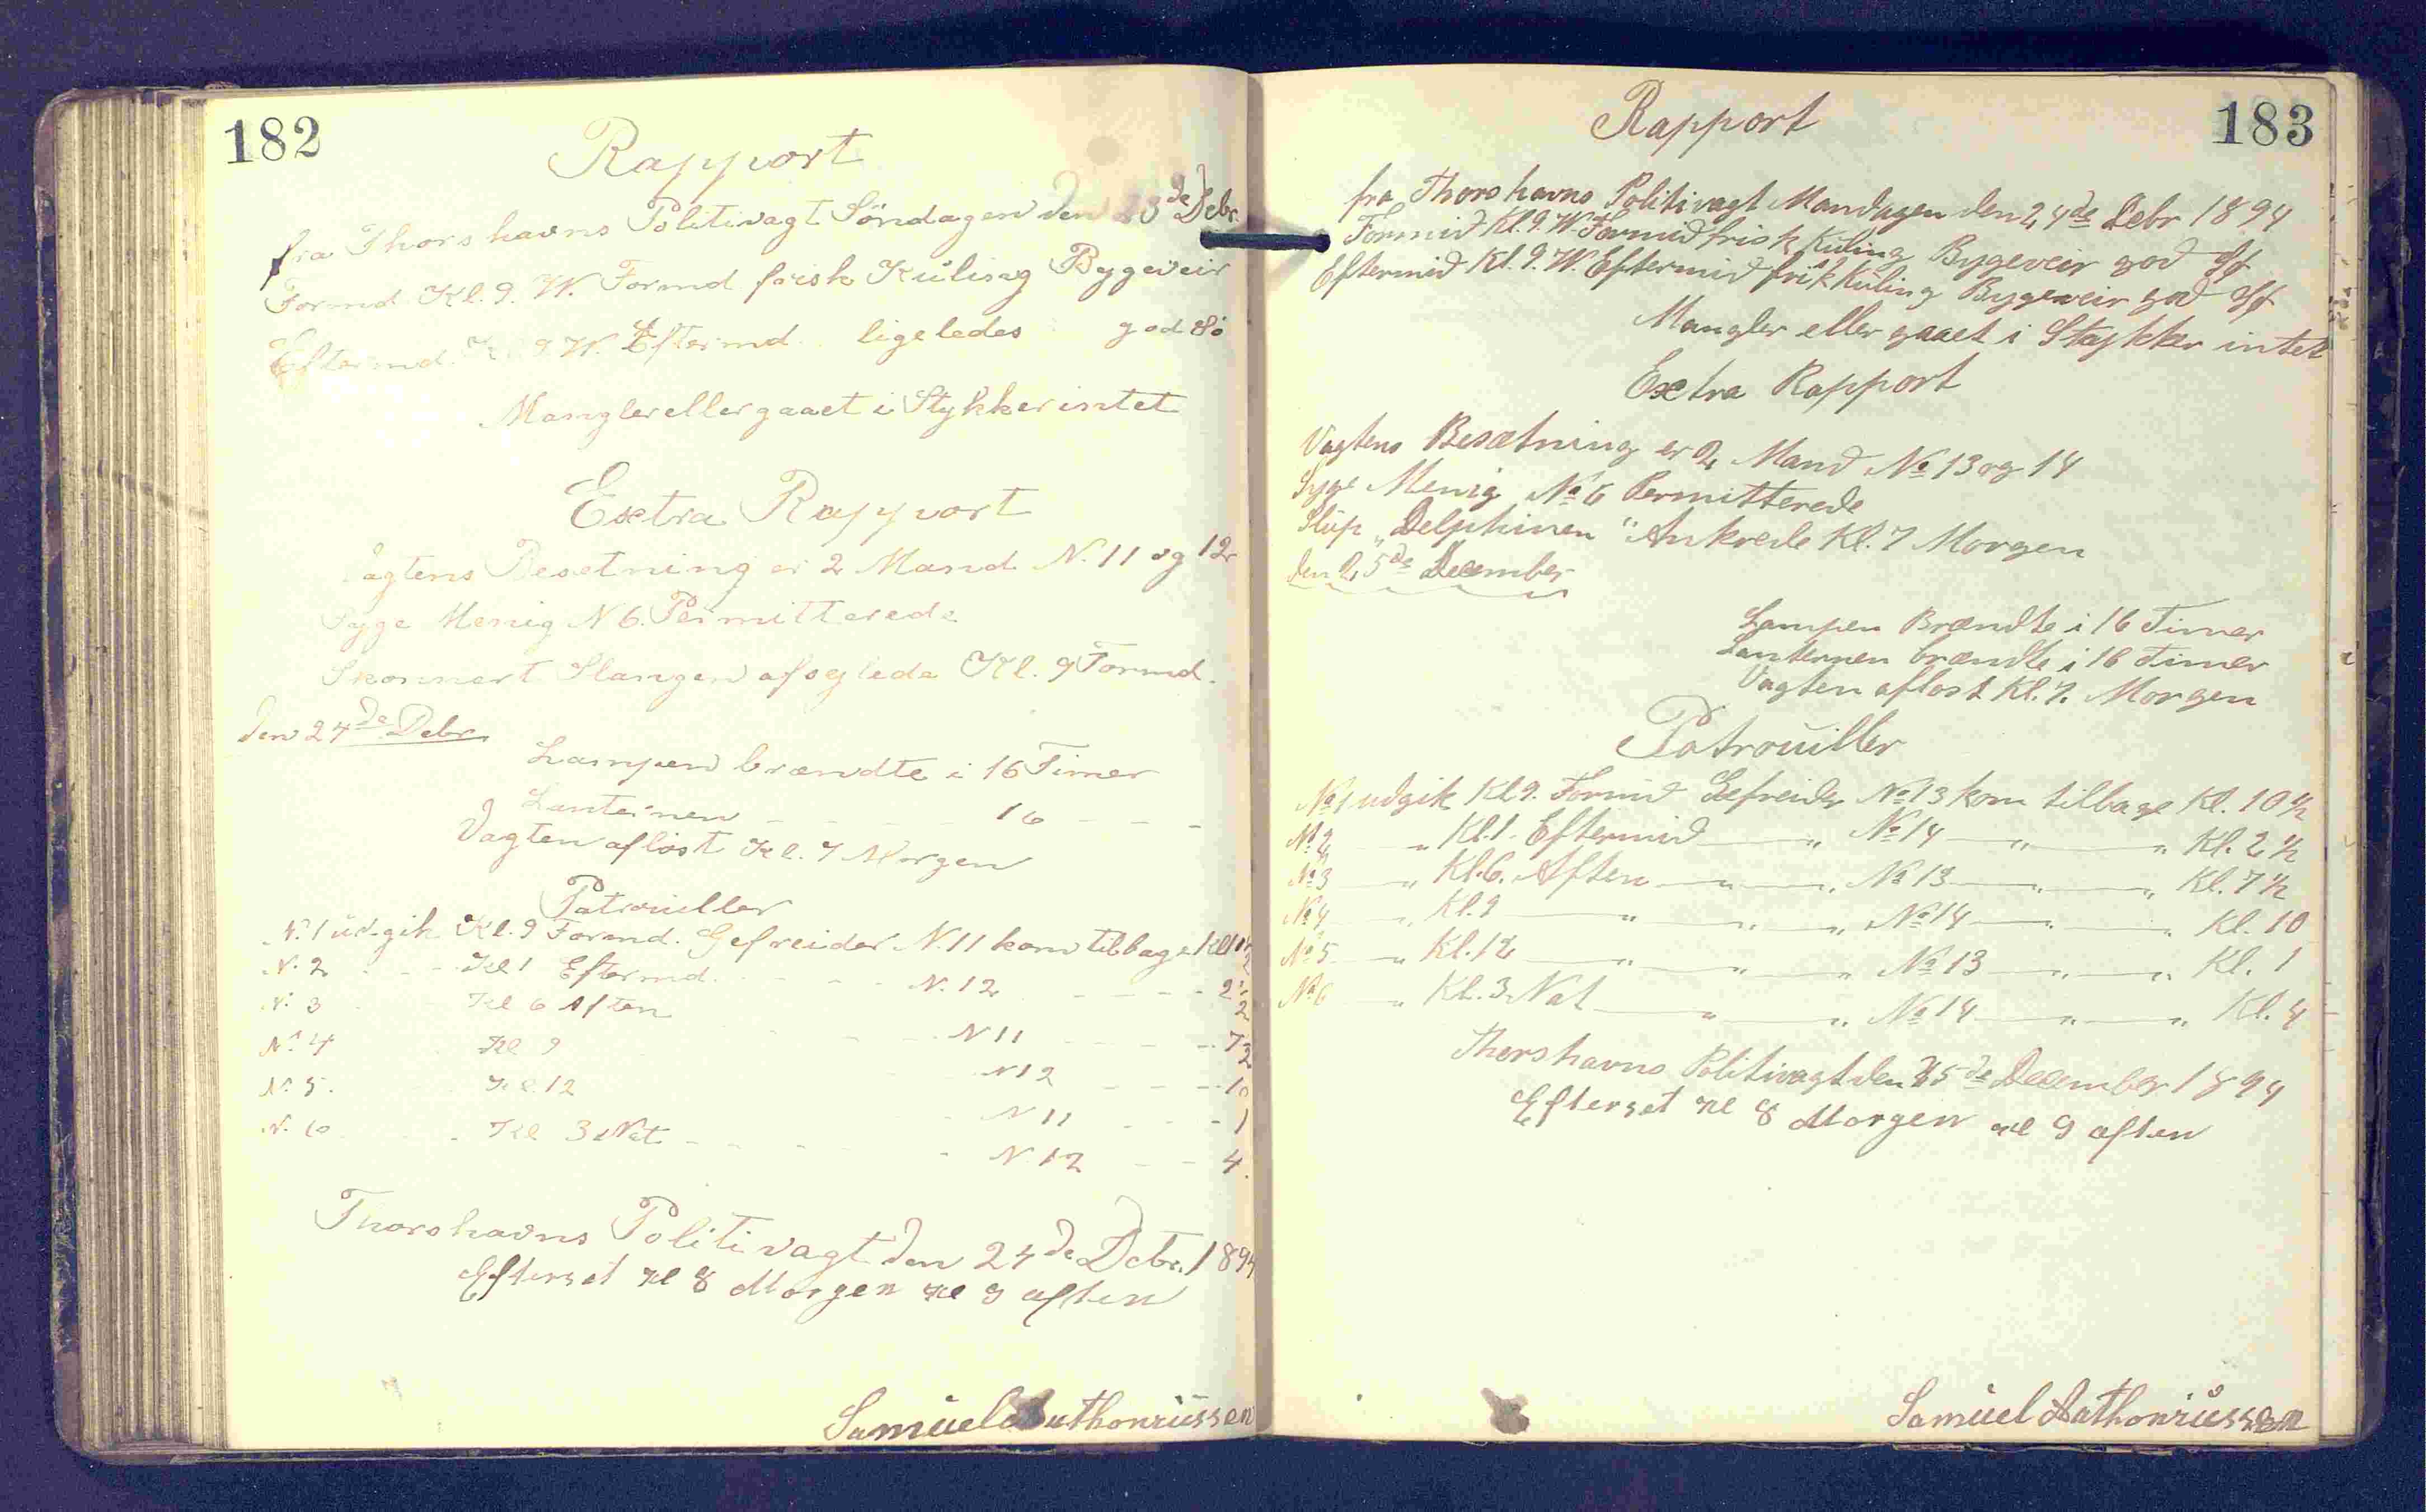 182
Rapport
fra Thorshavns Politivagt Söndagen den 23de Debr.
Formd Kl. 9. W. Formd frisk Kuling Bygeveir
Eftermd. Kl. 9 W. Eftermd. ligeledes god Sö
Mangler eller gaaet i Stykker intet
Extra Rapport
Vagtens Besetning er 2 Mand N. 11 og 12
Syge Menig N 6. Permitterede
Skonnert Slangen afseglede Kl. 9 Formd.
den 24de Debr.
Lampen brændte i 16 Timer
Lanternen - - - - 16 - - -
Vagten aflöst Kl. 7 Morgen
Patrouiller
N. 1 udgik Kl. 9 Formd. Gefreider N. 11 kom tilbage Kl 10½
N. 2 - - - Kl 1 Eftermd. - - - N. 12 - - - - 2½
N. 3 Kl 6 Aften - - N 11 - - - - 7½
N. 4 Kl 9 N 12 - - - 10
N. 5. Kl. 12 N 11 - - - 1
N. 6 - - Kl 3 Nat - - - - N. 12 - - 4.
Thorshavns Politivagt den 24de Debr. 1894
Efterset Kl 8 Morgen Kl 9 aften
Samuel Anthoniussen
183
Rapport
fra Thorshavns Politivagt Mandagen den 24de Debr 1894
Formid Kl. 9. W. Formid frisk Kuling Bygeveir god
Eftermid Kl. 9. W. Eftermid frisk Kuling Bygeveir god
Mangler eller gaaet i Stykker intet
Extra Rapport
Vagtens Besætning er 2 Mand No 13 og 14
Syge Menig No 6 Permitterede
Slup „Delphinen" Ankrede Kl. 7 Morgen
den 25de December
Lampen Brændte i 16 Timer
Lanternen brændte i 16 Timer
Vagten aflost Kl. 7. Morgen
Patrouiller
No 1 udgik Kl 9. Formid Gefreider No 13 kom tilbage Kl. 10½
No 2 — „ Kl. 1. Eftermid — „ No 14 — „ — „ Kl. 2½
No 3 — „ Kl. 6. Aften — „ — „ No 13 — „ — „ Kl. 7½
No 4 — „ Kl. 9 — „ — „ No 14 — „ — „ Kl. 10
No 5 — „ Kl. 12 — „ — „ No 13 — „ — „ Kl. 1
No 6 — „ Kl. 3 Nat — „ — „ No 14 — „ — „ Kl. 4
Thorshavns Politivagt den 25de December 1894
Efterset Kl 8 Morgen Kl 9 aften
Samuel Anthoniussen